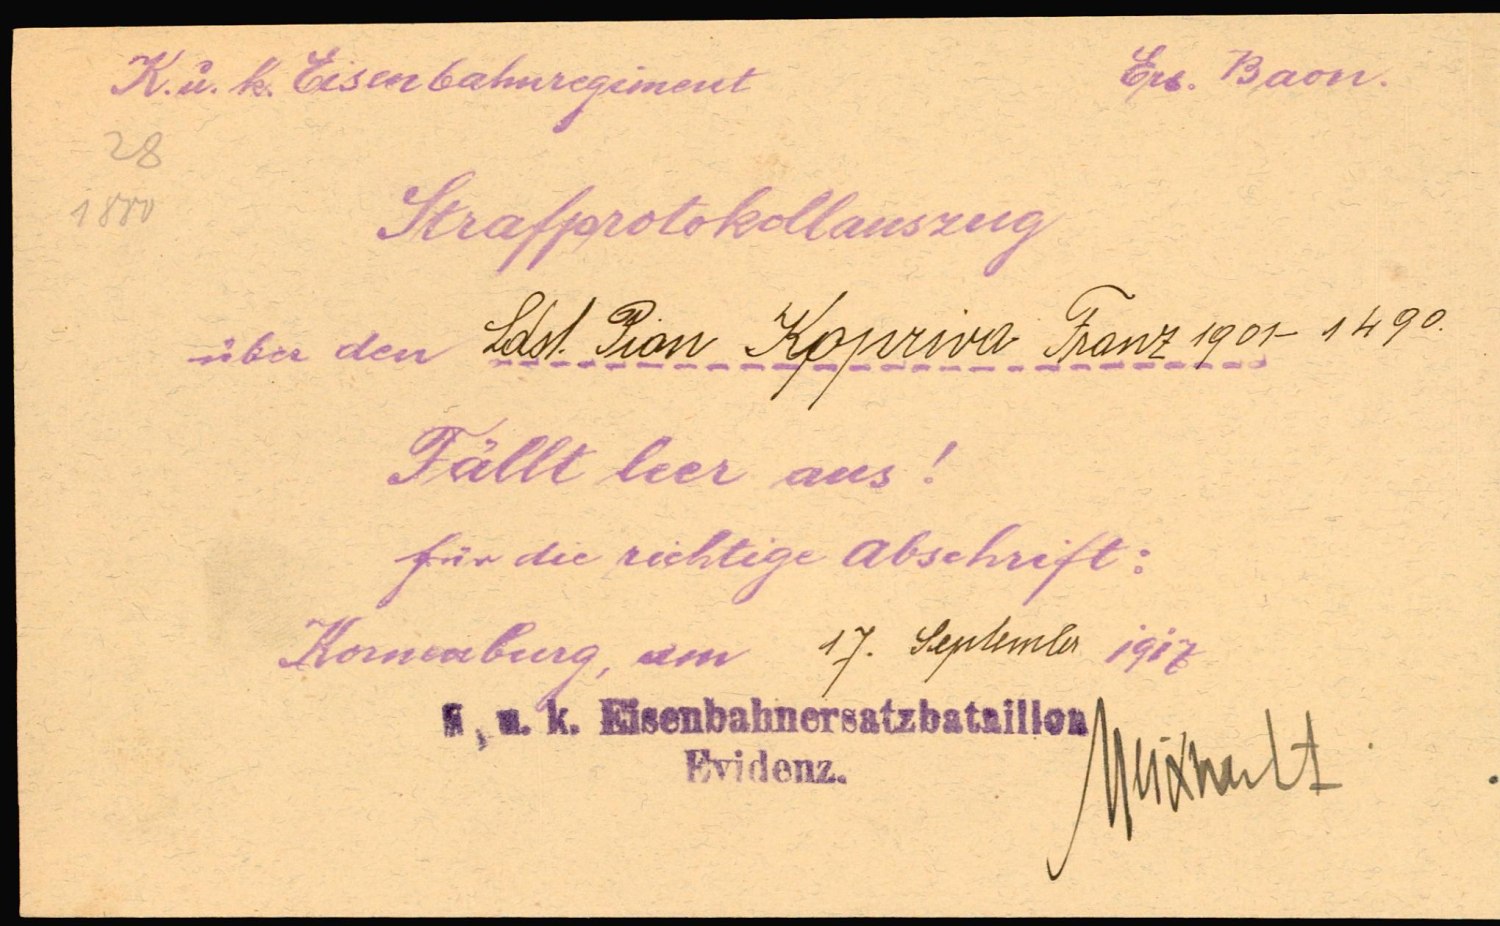 K.u.k. Eisenbahnregiment Ers. Baon.
28
1880
Strafprotokollauszug
über den Ldst. Pion Kopriva Franz 1901- 1490.
Fällt leer aus!
für die richtige Abschrift:
Korneuburg, am 17. September 1917
K. u. k. Eisenbahnersatzbataillon
Evidenz.